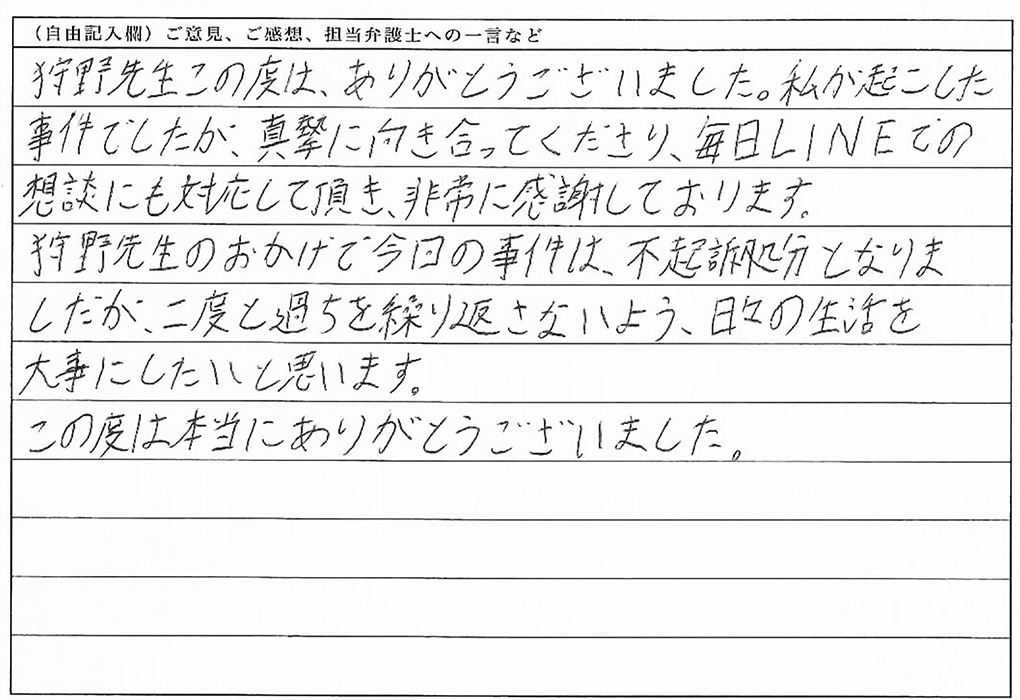 （自由記入欄）ご意見、ご感想、担当弁護士への一言など
狩野先生この度は、ありがとうございました。私が起こした
事件でしたが、真摯に向き合ってくださり、毎日LINEでの
想談にも対応して頂き、非常に感謝しております。
狩野先生のおかげで今回の事件は、不起訴処分となりま
したが、二度と過ちを繰り返さないよう、日々の生活を
大事にしたいと思います。
この度は本当にありがとうございました。